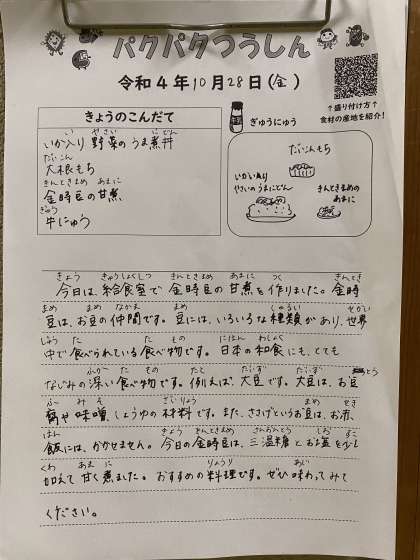 パクパクつうしん
令和4年10月28日(金)
↑盛り付け方↑
食材の産地を紹介!
きょうのこんだて
いか入り野菜のうま煮丼
大根もち
金時豆の甘煮
牛にゅう
ぎゅうにゅう
だいこんもち
いかいり
やさいのうまにどん
きんときまめの
あまに
今日は、給食室で金時豆の甘煮を作りました。金時
豆は、お豆の仲間です。豆には、いろいろな種類があり、世界
中で食べられている食べ物です。日本の和食にも、とても
なじみの深い食べ物です。例えば、大豆です。大豆は、お豆
腐や味噌、しょうゆの材料です。また、ささげというお豆は、お赤
飯には、かかせません。今日の金時豆は、三温糖とお塩を少し
加えて甘く煮ました。おすすめの料理です。ぜひ味わってみて
ください。